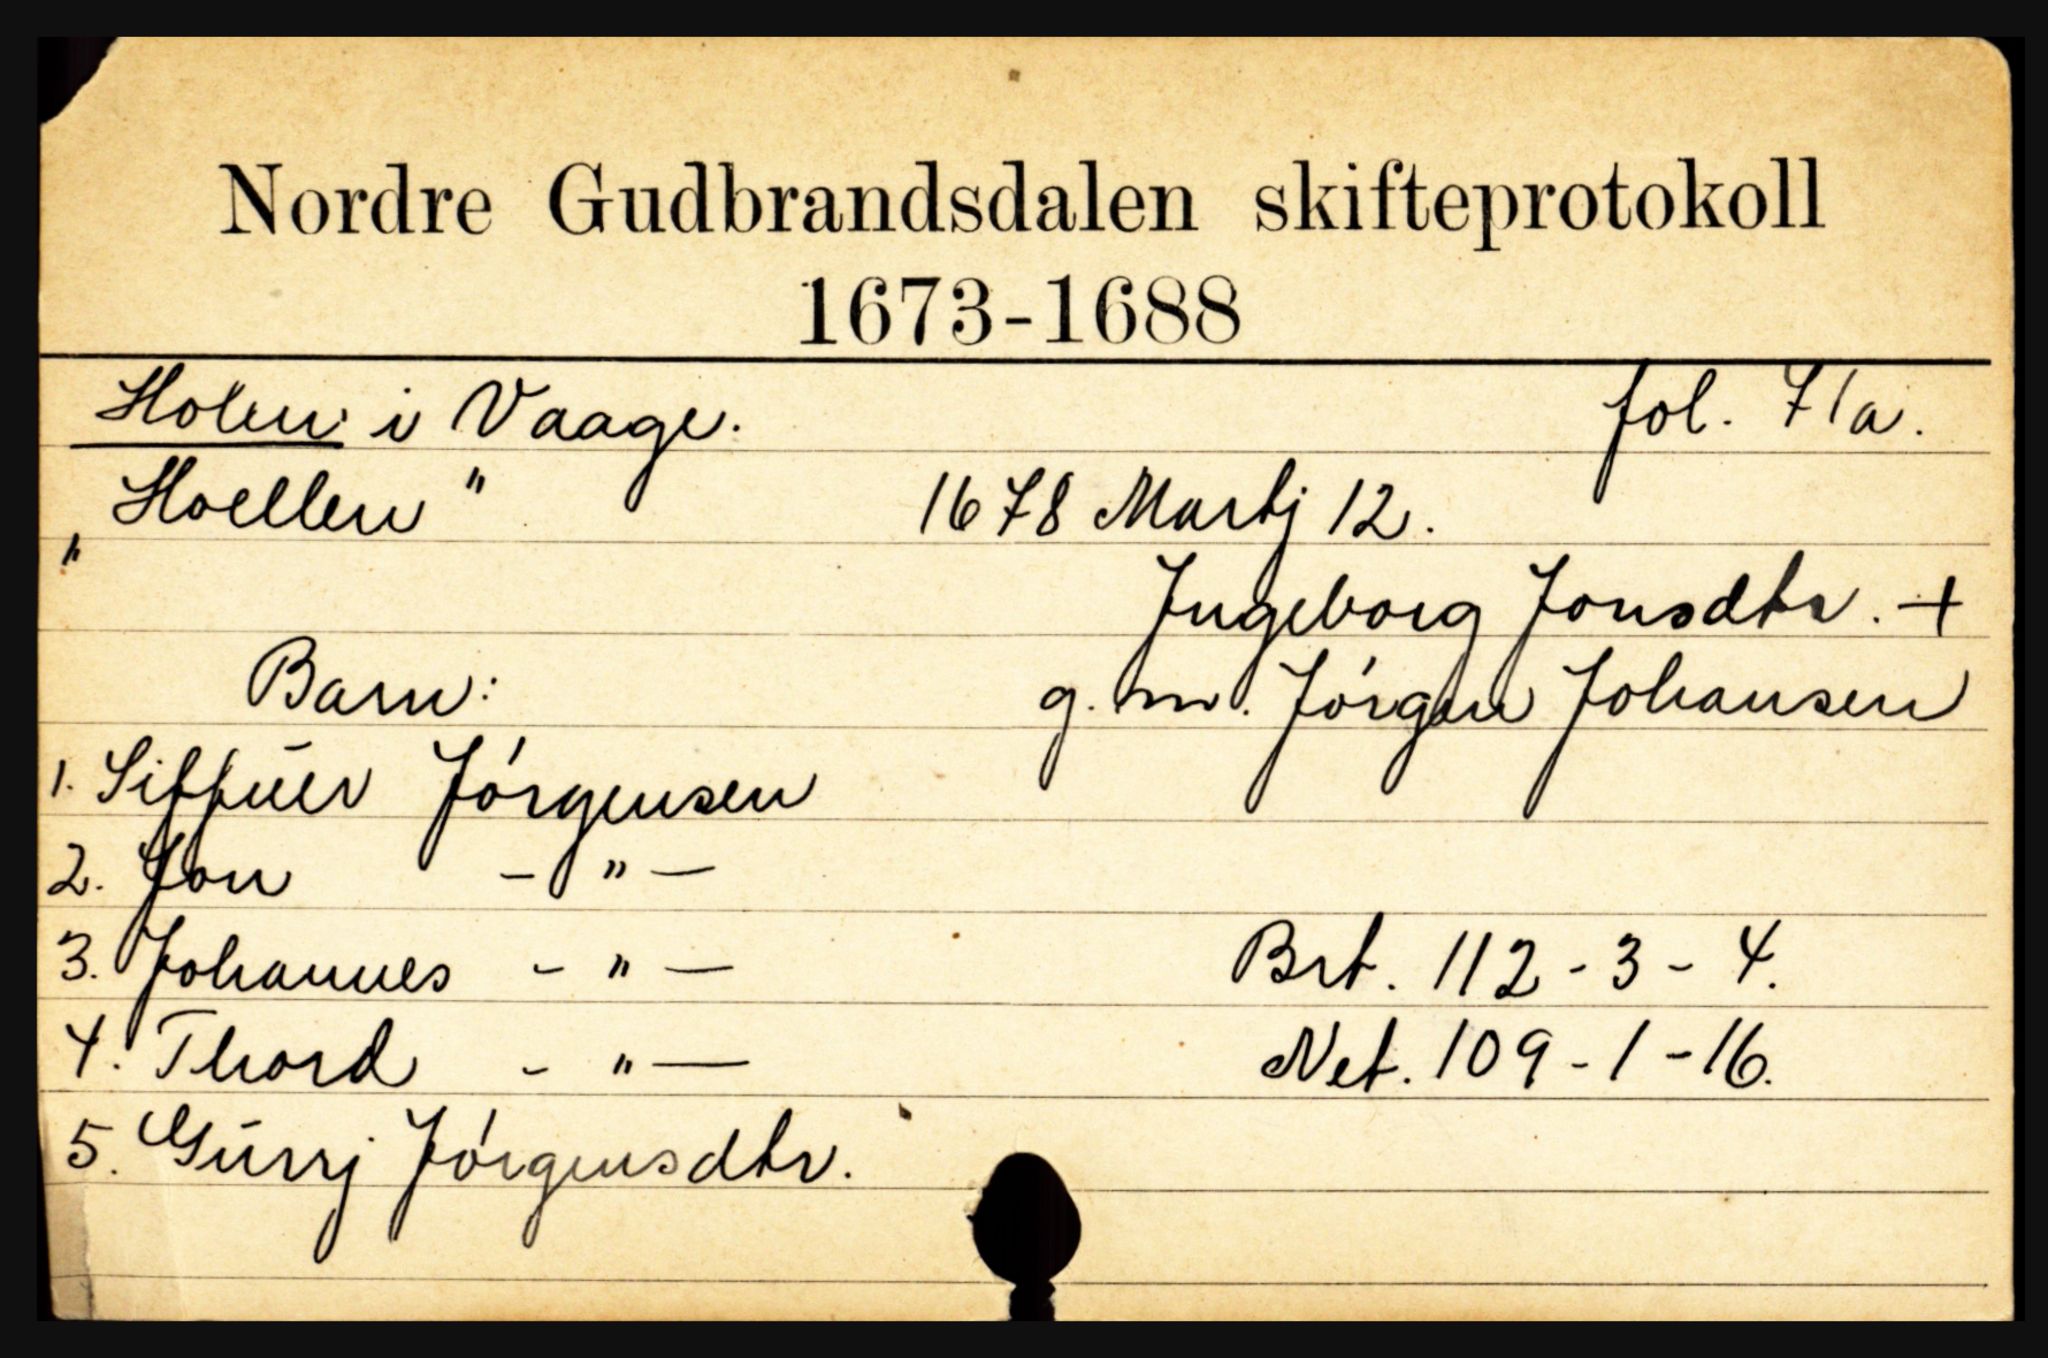 Nordre Gudbrandsdalen skifteprotokoll
1673-1688
Holen i Vaage. fol. 71a.
"Hoellen" 1678 Martj 12.
Ingeborg Jonsdtr. +
Barn: g. m. Jórgen Johansen
1. Siffuer Jórgensen
2. Jon - " -
3. Johannes - " - Brt. 112-3-4.
4. Thord - " - Net. 109-1-16.
5. Gūrrj Jórgensdtr.